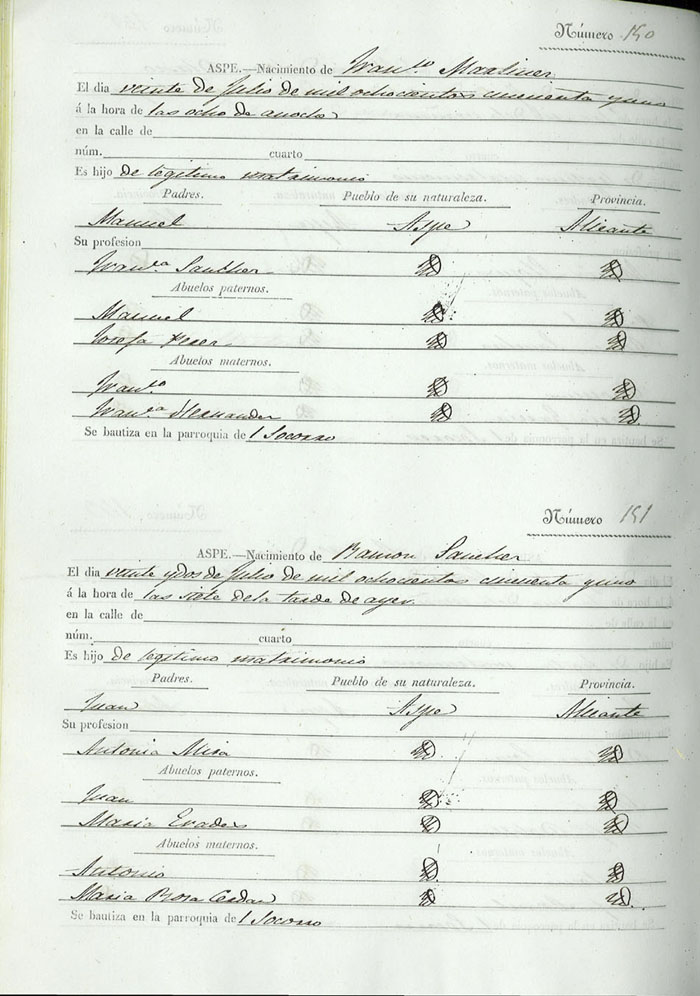 Número 150
ASPE.—Nacimiento de Franco Martinez
El dia veinte de Julio de mil ochocientos cincuenta y uno
á la hora de las ocho de anoche
en la calle de
núm. cuarto
Es hijo de legitimo matrimonio
Padres. Pueblo de su naturaleza. Provincia.
Manuel Aspe Alicante
Su profesion
Franca Sancher id id
Abuelos paternos.
Manuel id id
Josefa id id
Abuelos maternos.
Franco id id
Franca Hernander id id
Se bautiza en la parroquia del Socorro
Número 151
ASPE.—Nacimiento de Ramon Sancher
El dia veinte y dos de Julio de mil ochocientos cincuenta y uno
á la hora de las siete de la tarde de ayer.
en la calle de
núm. cuarto
Es hijo de legitimo matrimonio
Padres. Pueblo de su naturaleza. Provincia.
Juan Aspe Alicante
Su profesion
Antonia id id
Abuelos paternos.
Juan id id
Maria id id
Abuelos maternos.
Antonio id id
Maria Rosa Cerdan id id.
Se bautiza en la parroquia del Socorro